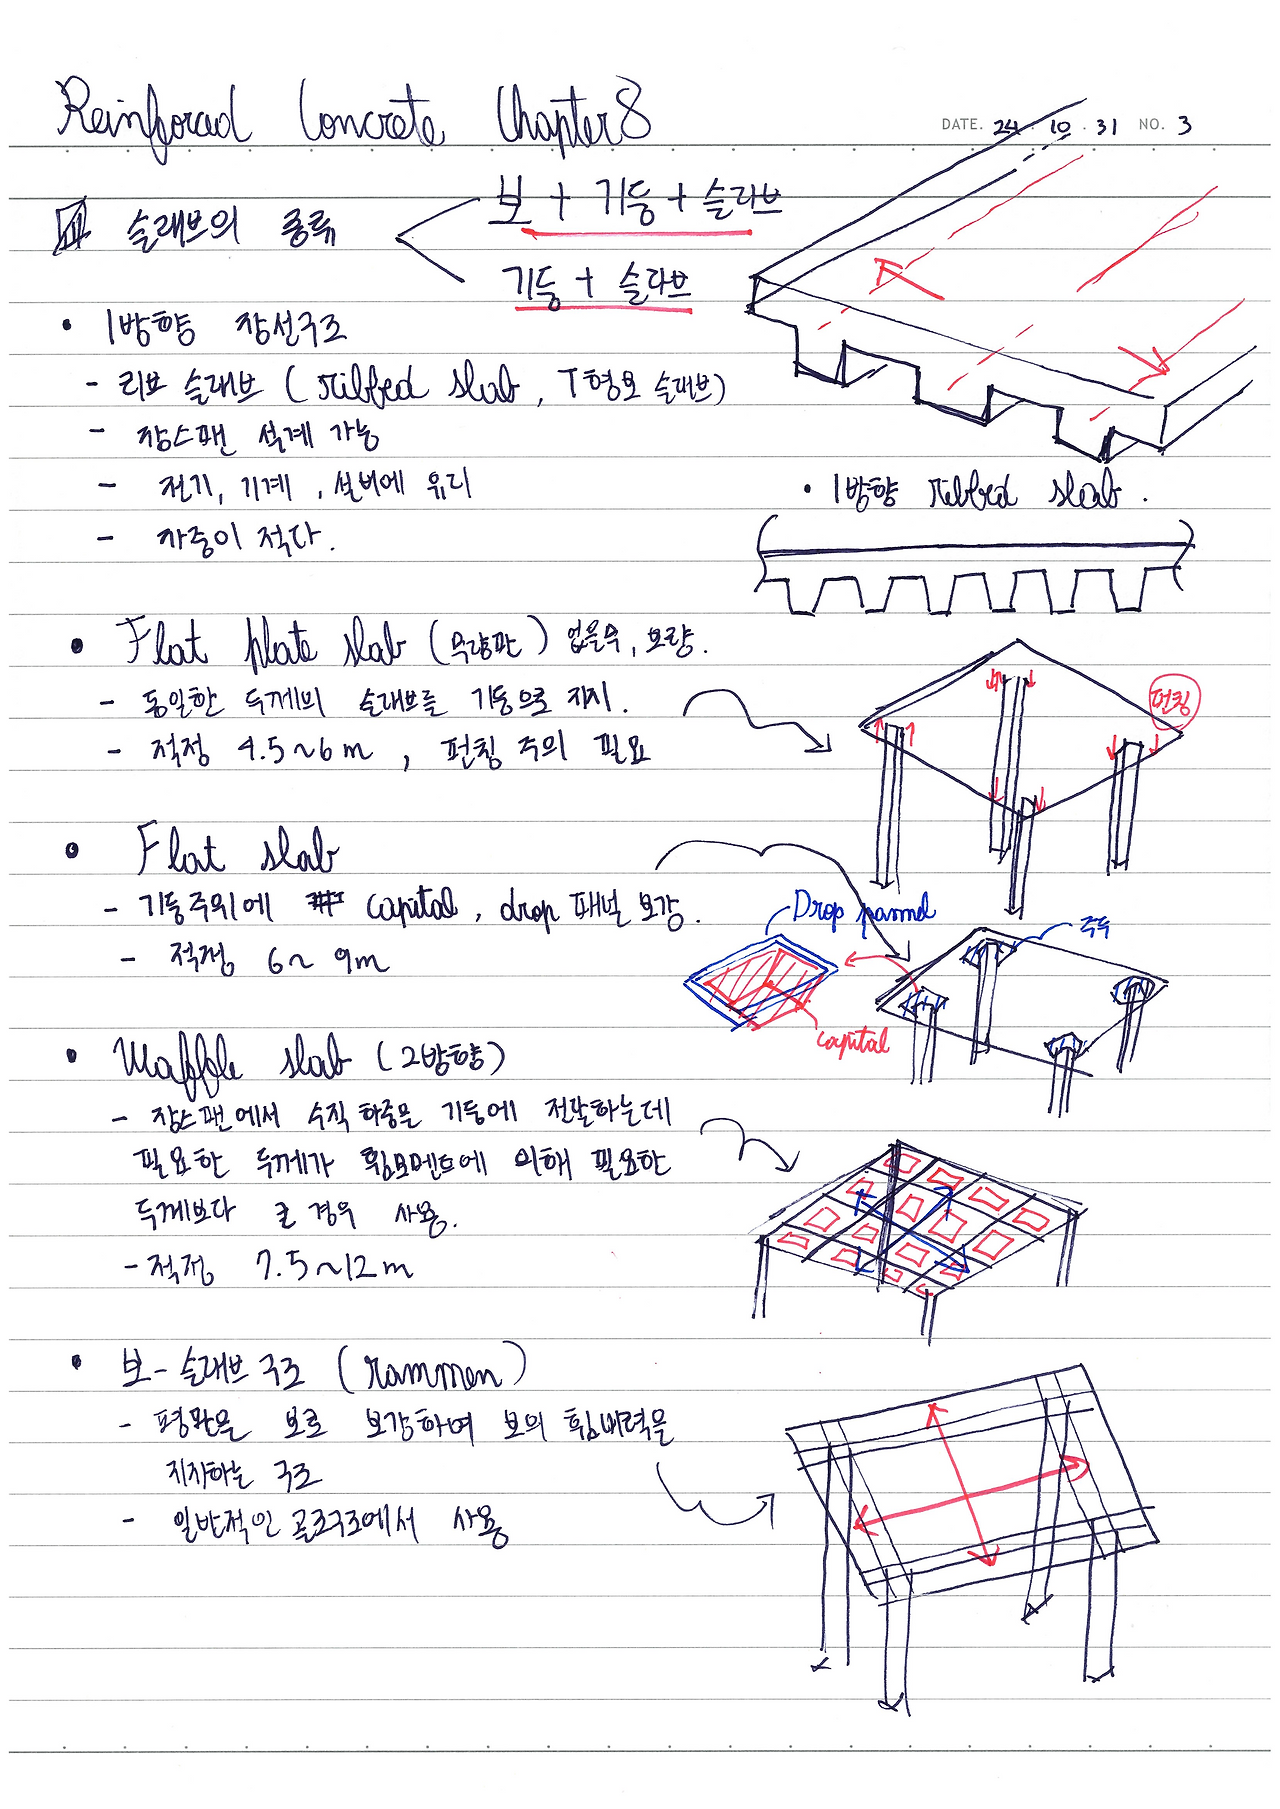 Reinforced Concrete Chapter 8
DATE. 24 . 10 . 31 NO. 3
슬래브의 종류
보 + 기둥 + 슬라브
기둥 + 슬라브
• 1방향 장선구조
- 리브 슬래브 ( ribbed slab , T형보 슬래브)
- 장스팬 설계 가능
- 전기, 기계, 설비에 유리
- 자중이 적다.
• 1방향 ribbed slab .
• Flat plate slab (무량판)
- 동일한 두께의 슬래브를 기둥으로 지지.
- 적정 4.5~6m , 펀칭 주의 필요
펀칭
• Flat slab
- 기둥주위에 capital, drop 패널 보강.
- 적정 6~ 9m
Drop pannel
주두
capital
• Waffle slab (2방향)
- 장스팬에서 수직하중을 기둥에 전달하는데
필요한 두께가 휨모멘트에 의해 필요한
두께보다 클 경우 사용.
- 적정 7.5~12m
• 보-슬래브 구조 (rammen)
- 평판을 보로 보강하여 보의 휨내력을
지지하는 구조
- 일반적인 골조구조에서 사용